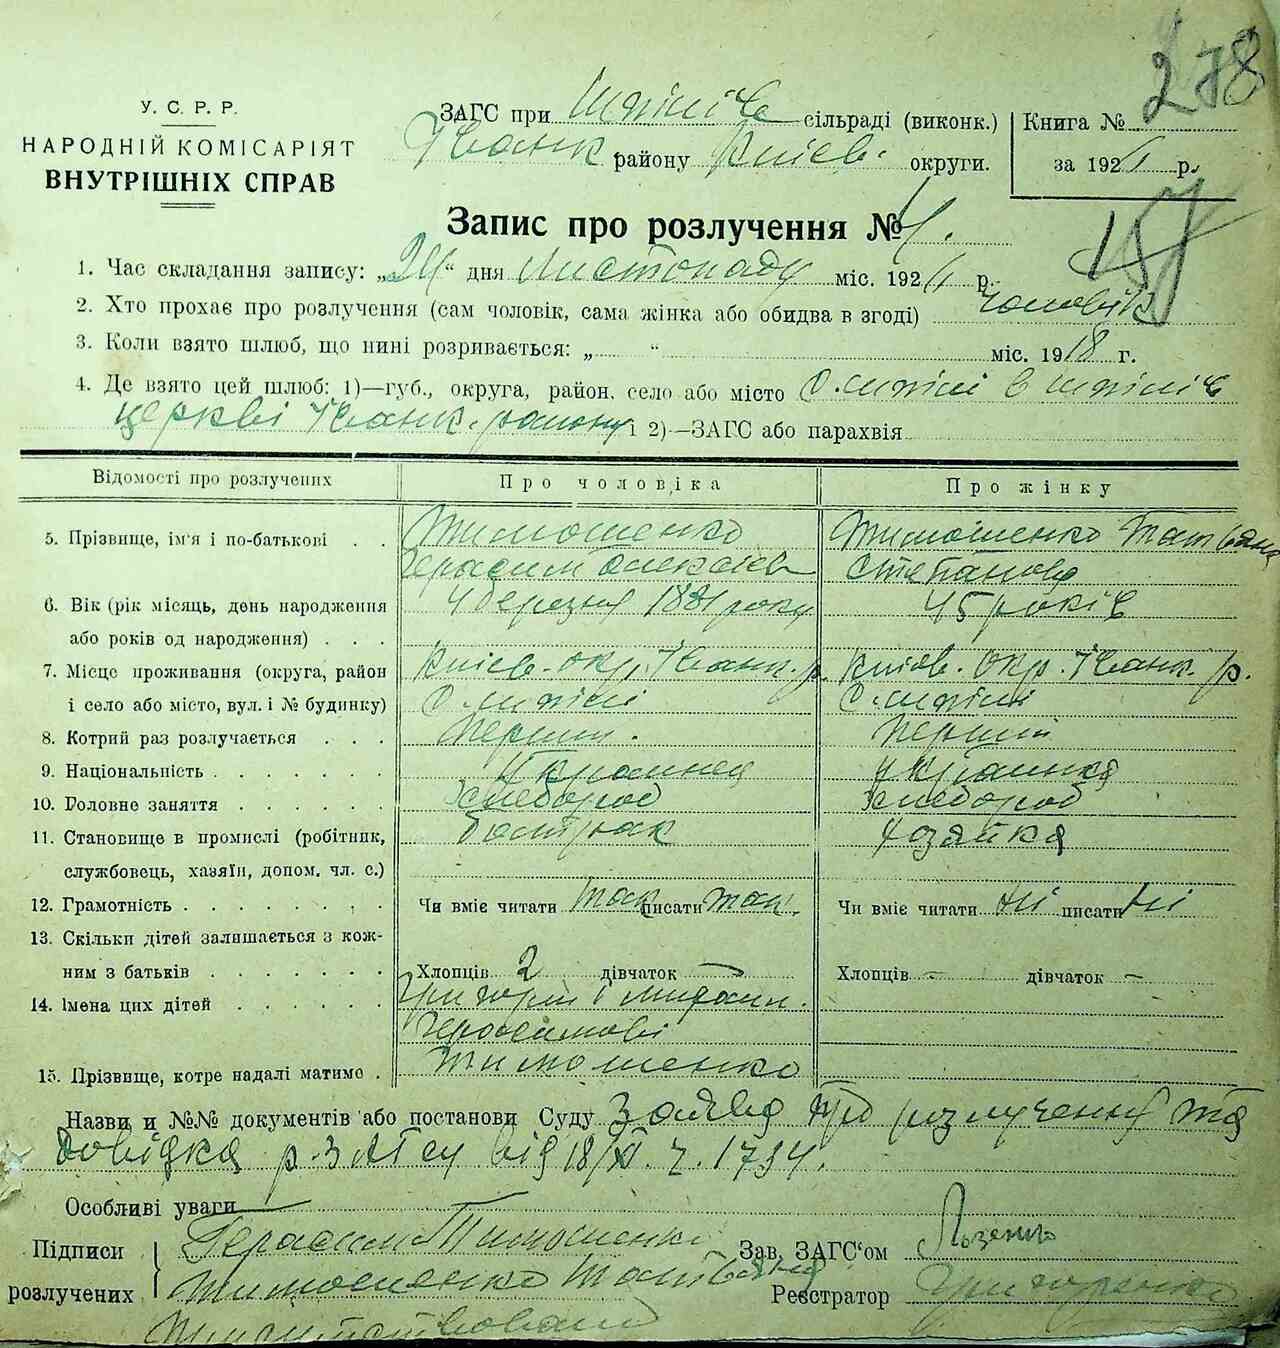 278
У. С. Р. Р.
НАРОДНІЙ КОМІСАРІЯТ
ВНУТРІШНІХ СПРАВ
ЗАГС при Шпілів сільраді (виконк.)
Іванк. району Київ. округи.
Книга №
за 192 р.
Запис про розлучення № 4.
157
1. Час складання запису: „24" дня Листопаду міс. 192 р.
2. Хто прохає про розлучення (сам чоловік, сама жінка або обидва в згоді) чоловік
3. Коли взято шлюб, що нині розривається: „ " міс. 1918 г.
4. Де взято цей шлюб: 1)—губ., округа, район, село або місто с. Шпілі в Шпілів
церкві Іванк. району і 2)—ЗАГС або парахвія
Відомості про розлучених
Про чоловіка
Про жінку
5. Прізвище, ім'я і по-батькові . .
Тимошенко
Герасим Олексієв
Тимошенко Татьяна
Степанова
6. Вік (рік місяць, день народження
або років од народження) . . .
4 березня 1881 року
45 років
7. Місце проживання (округа, район
і село або місто, вул. і № будинку)
Київ. окр. Іванк. р.
с. Шпілі
Київ. окр. Іванк. р.
с. Шпілі
8. Котрий раз розлучається . . .
перший.
перший
9. Національність . . . . . . .
Українец
Українка
10. Головне заняття . . . . . .
хлебороб
хлебороб
11. Становище в промислі (робітник,
службовець, хазяїн, допом. чл. с.)
батрак
хозяйка
12. Грамотність . . . . . . . .
Чи вміє читати так писати так.
Чи вміє читати ні писати ні
13. Скільки дітей залишається з кож-
ним з батьків . . . . . . .
Хлопців 2 дівчаток —
Хлопців — дівчаток —
14. Імена цих дітей . . . . . .
Григорій і
Герасимові
15. Прізвище, котре надалі матимо .
Тимошенко
Назви и №№ документів або постанови Суду Заява про розлучення та
довідка р. ЗАГСу від 18/XI. ч. 1734.
Особливі уваги —
Підписи
розлучених
Герасим Тимошенко
Тимошенко Татьяна
Зав. ЗАГС'ом
Реєстратор Григоренко